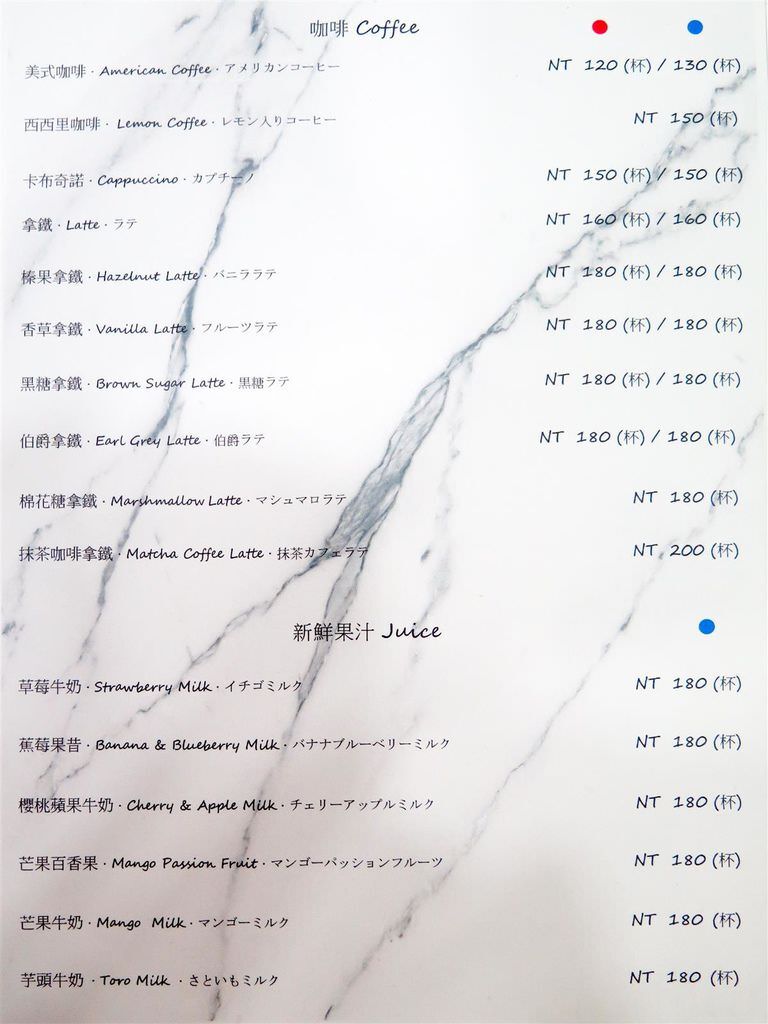 咖啡 Coffee
美式咖啡 · American Coffee · アメリカンコーヒー NT 120 (杯) / 130 (杯)
西西里咖啡 · Lemon Coffee · レモン入りコーヒー NT 150 (杯)
卡布奇諾 · Cappuccino · カプチーノ NT 150 (杯) / 150 (杯)
拿鐵 · Latte · ラテ NT 160 (杯) / 160 (杯)
榛果拿鐵 · Hazelnut Latte · バニララテ NT 180 (杯) / 180 (杯)
香草拿鐵 · Vanilla Latte · フルーツラテ NT 180 (杯) / 180 (杯)
黑糖拿鐵 · Brown Sugar Latte · 黒糖ラテ NT 180 (杯) / 180 (杯)
伯爵拿鐵 · Earl Grey Latte · 伯爵ラテ NT 180 (杯) / 180 (杯)
棉花糖拿鐵 · Marshmallow Latte · マシュマロラテ NT 180 (杯)
抹茶咖啡拿鐵 · Matcha Coffee Latte · 抹茶カフェラテ NT 200 (杯)
新鮮果汁 Juice
草莓牛奶 · Strawberry Milk · イチゴミルク NT 180 (杯)
蕉莓果昔 · Banana & Blueberry Milk · バナナブルーベリーミルク NT 180 (杯)
櫻桃蘋果牛奶 · Cherry & Apple Milk · チェリーアップルミルク NT 180 (杯)
芒果百香果 · Mango Passion Fruit · マンゴーパッションフルーツ NT 180 (杯)
芒果牛奶 · Mango Milk · マンゴーミルク NT 180 (杯)
芋頭牛奶 · Toro Milk · さといもミルク NT 180 (杯)